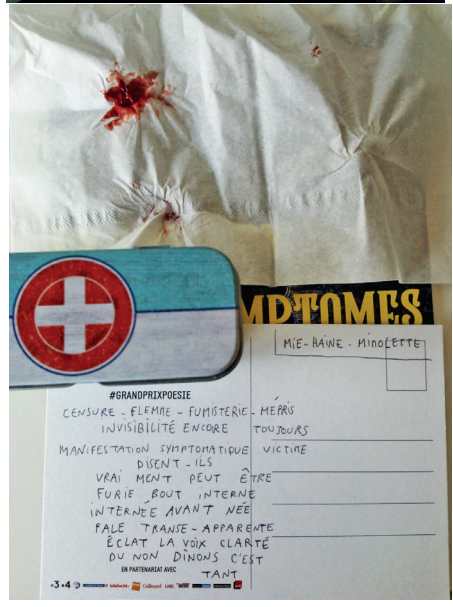 MPTOMES
MIE-HAINE. MIMOLETTE
#GRANDPRIXPOESIE
CENSURE - FLEMME - FUMISTERIE - MÉPRIS
INVISIBILITÉ ENCORE TOUJOURS
MANIFESTATION SYMPTOMATIQUE VICTIME
DISENT-ILS
VRAI MENT PEUT ÊTRE
FURIE BOUT INTERNE
INTERNÉE AVANT NÉE
PALE TRANSE-APPARENTE
ÉCLAT LA VOIX CLARTÉ
DU NON DÎNONS C'EST
TANT
EN PARTENARIAT AVEC
Gallimard